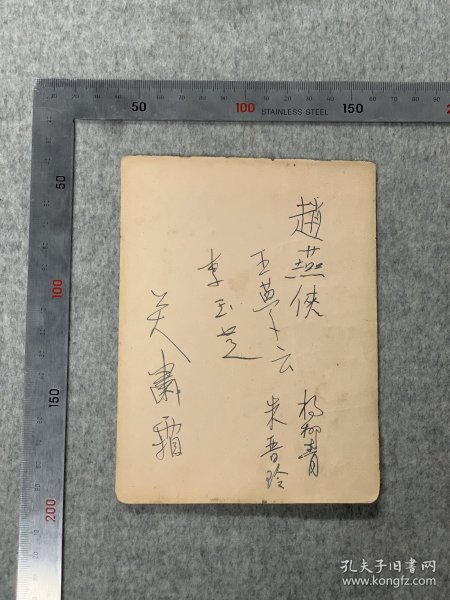 50
100
STAINLESS STEEL
150
50
100
150
200
趙燕俠
楊柳青
李玉芝
关肅霜
孔夫子旧书网
www.kongfz.com